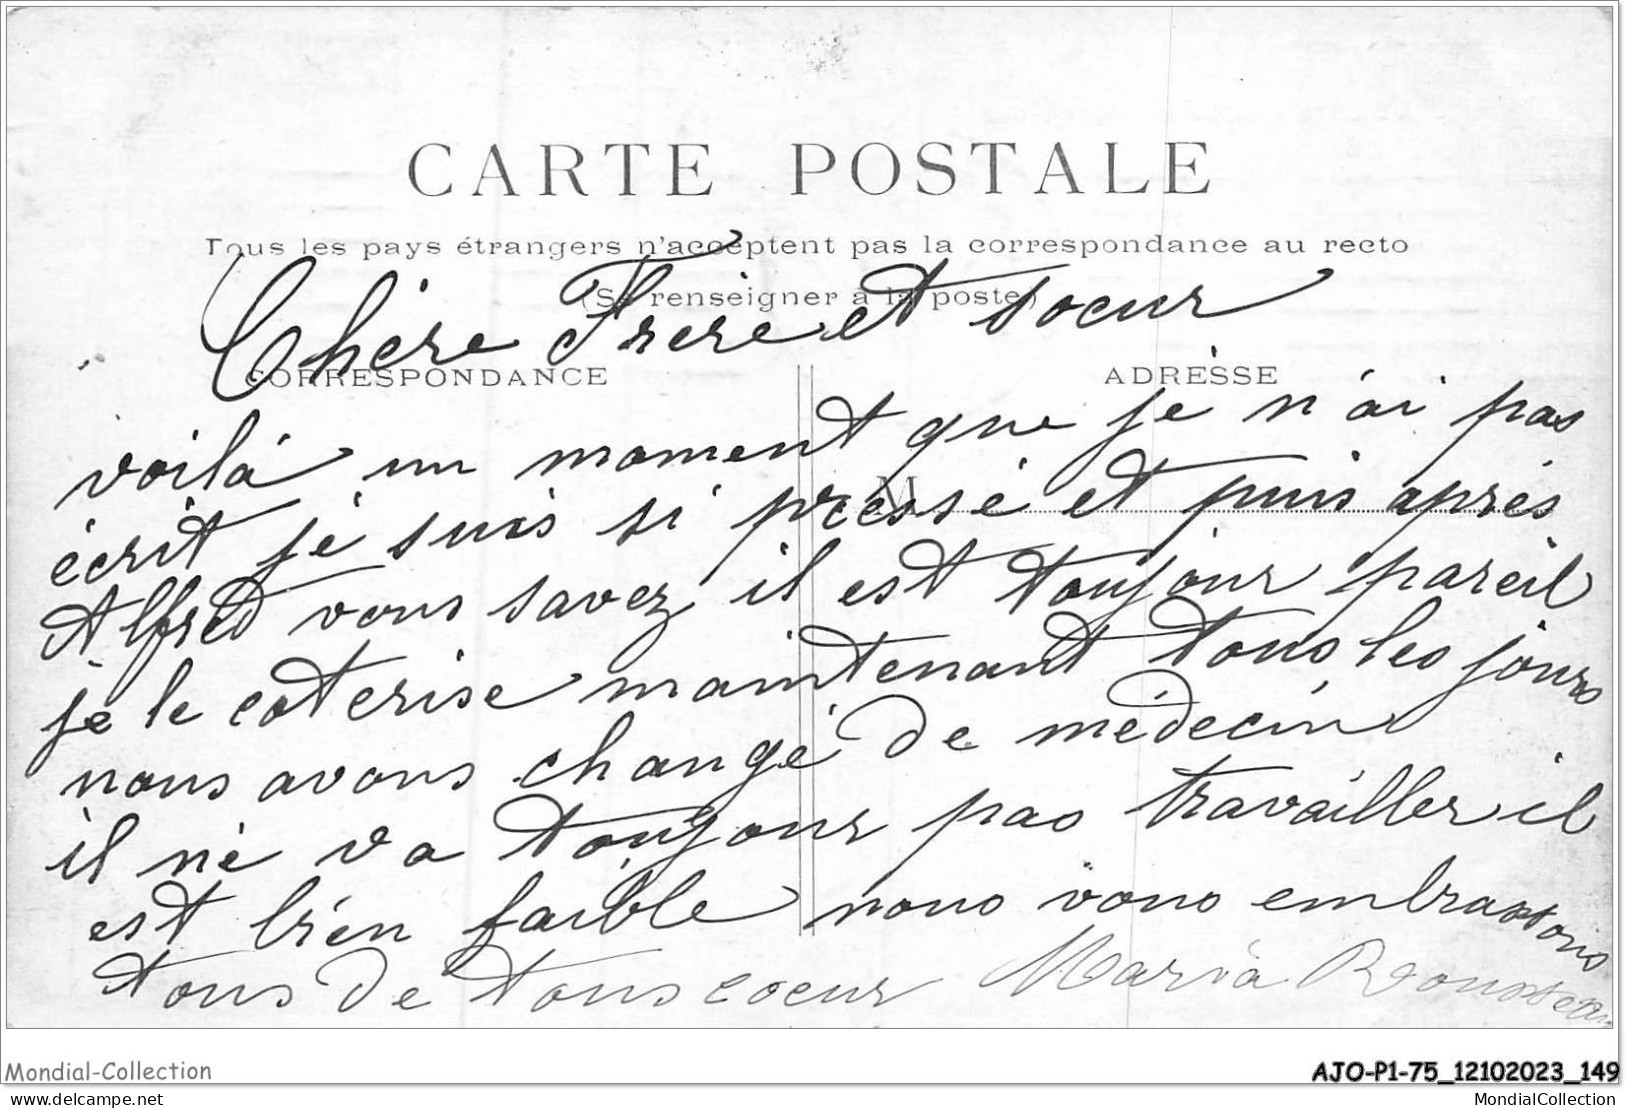 CARTE POSTALE
Tous les pays étrangers n'acceptent pas la correspondance au recto
(Se renseigner à la poste)
Chère Frere et soeur
CORRESPONDANCE
ADRESSE
voilà un moment que je n'ai pas
M
écrit je suis si pressé et puis après
Alfred vous savez il est toujour pareil
je le coterise maintenant tous les jours
nous avons changé de médecin
il ne va toujour pas travailler il
est bien faible nous vous embrassons
tous de tous coeur Maria Rousseau
Mondial-Collection
AJO-P1-75_12102023_149
delcampe.net
MondialCollection